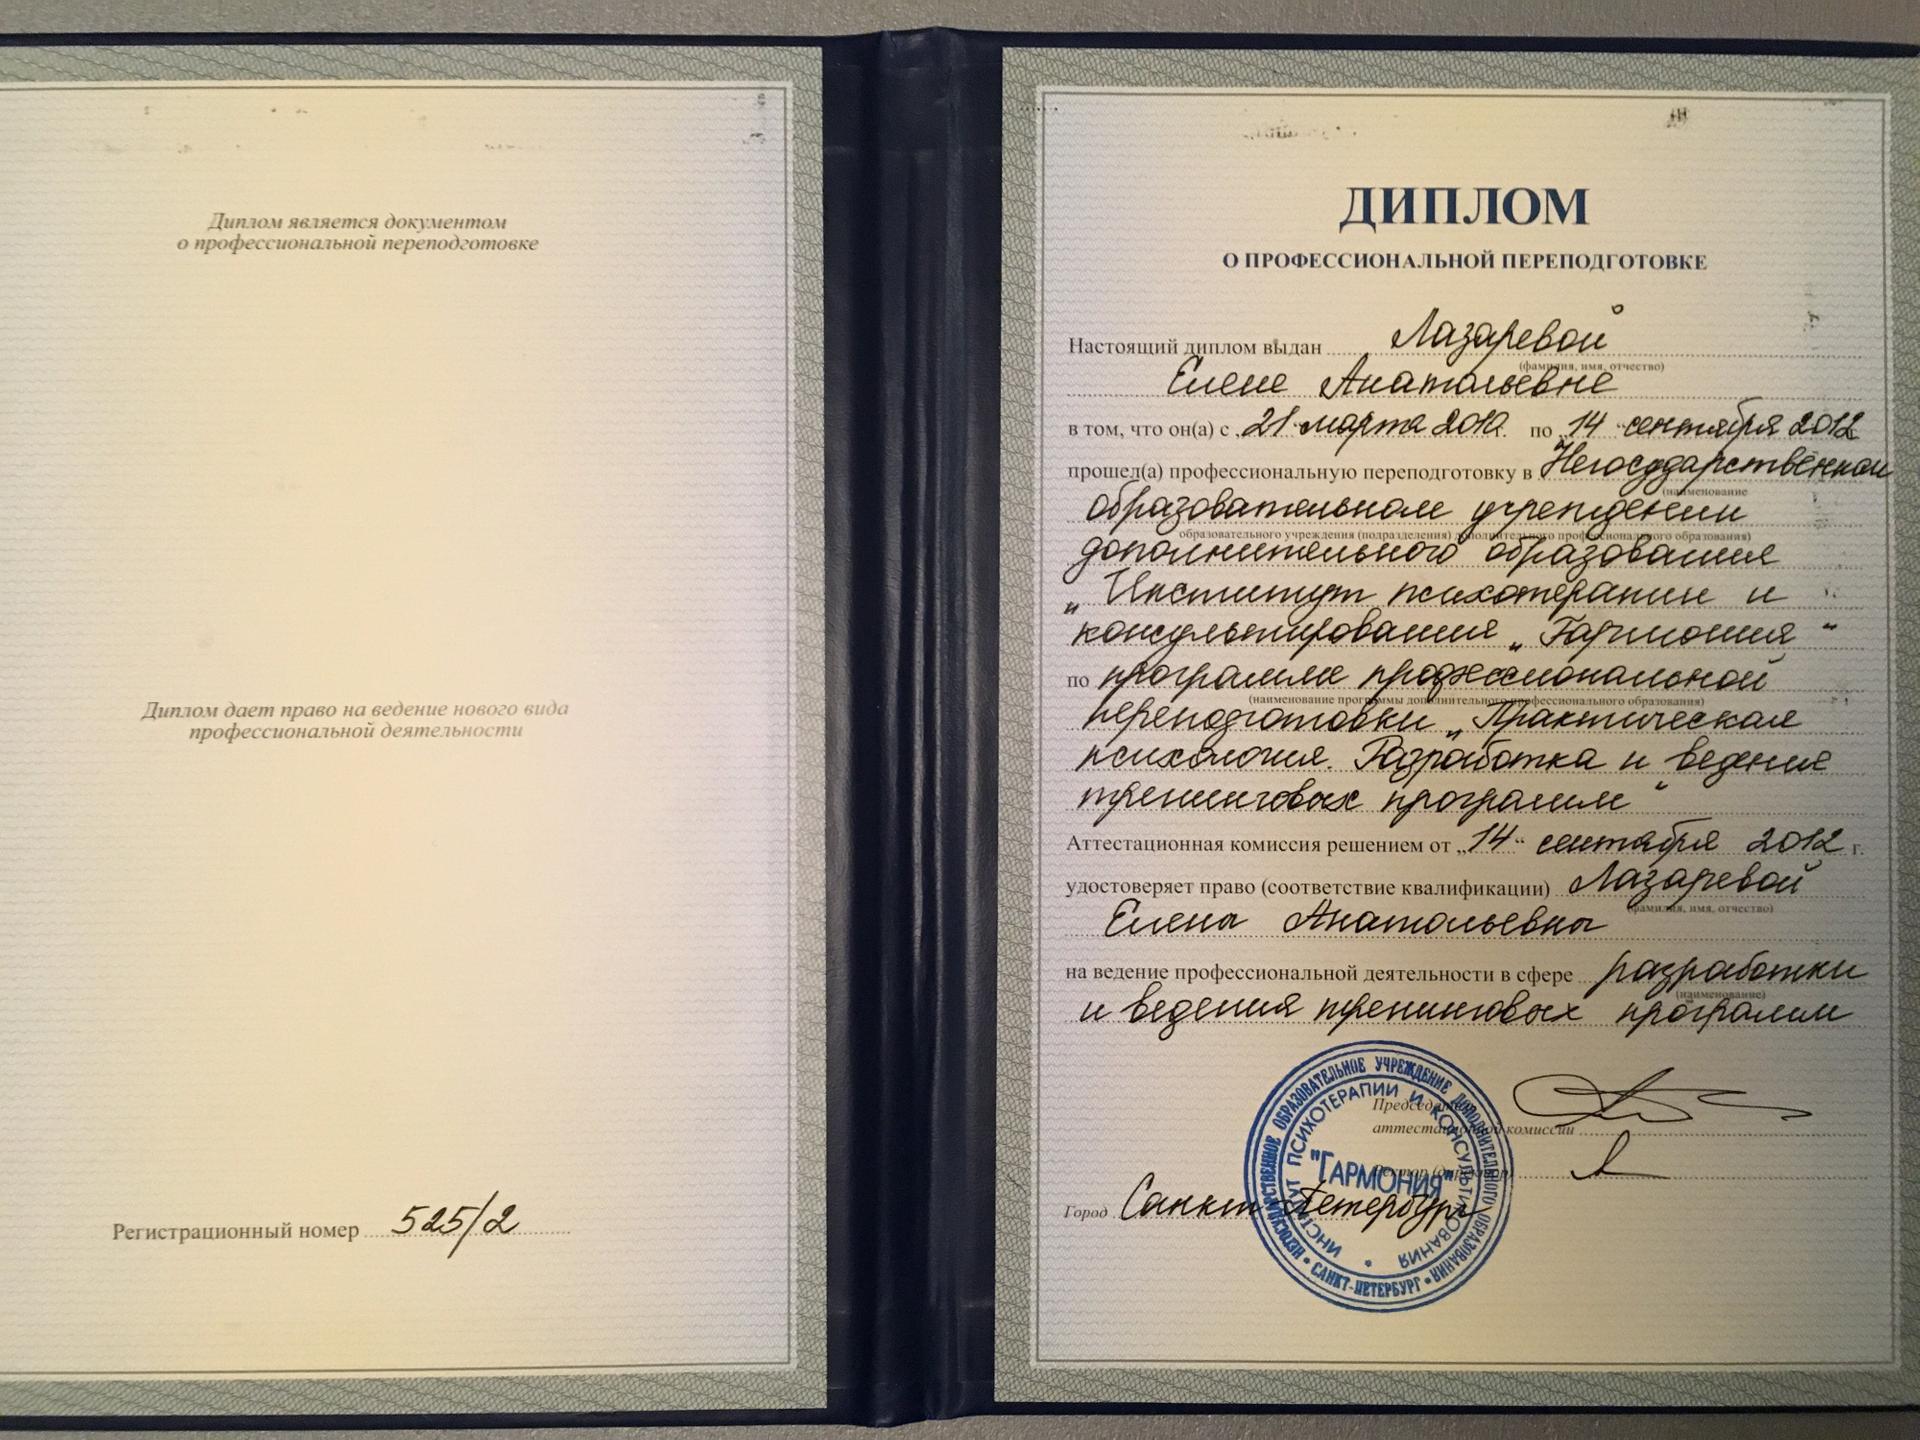 Диплом является документом
о профессиональной переподготовке
Диплом дает право на ведение нового вида
профессиональной деятельности
Регистрационный номер 525/2
ДИПЛОМ
О ПРОФЕССИОНАЛЬНОЙ ПЕРЕПОДГОТОВКЕ
Настоящий диплом выдан Лазаревой
(фамилия, имя, отчество)
Елене Анатольевне
в том, что он(а) с 21 марта 2010 г. по 14 сентября 2012
прошел(а) профессиональную переподготовку в Негосударственном
(наименование
образовательном учреждении
образовательного учреждения (подразделения) дополнительного профессионального образования)
дополнительного образования
„Институт психотерапии и
консультирования „Гармония"
по программе профессиональной
(наименование программы дополнительного профессионального образования)
переподготовки „Практическая
психология. Разработка и ведение
тренинговых программ"
Аттестационная комиссия решением от „14“ сентября 2012 г.
удостоверяет право (соответствие квалификации) Лазаревой
(фамилия, имя, отчество)
Елены Анатольевны
на ведение профессиональной деятельности в сфере разработки
(наименование)
и ведения тренинговых программ
Председатель
аттестационной комиссии
Ректор (директор)
Город Санкт-Петербург
НЕГОСУДАРСТВЕННОЕ ОБРАЗОВАТЕЛЬНОЕ УЧРЕЖДЕНИЕ ДОПОЛНИТЕЛЬНОГО ОБРАЗОВАНИЯ • САНКТ-ПЕТЕРБУРГ •
ИНСТИТУТ ПСИХОТЕРАПИИ И КОНСУЛЬТИРОВАНИЯ
"ГАРМОНИЯ"